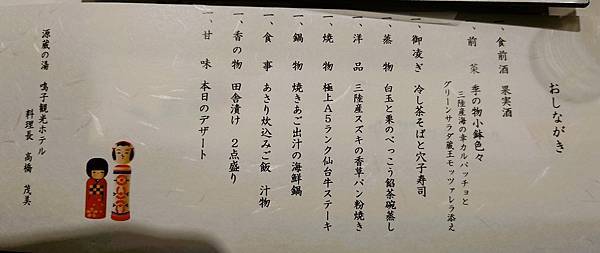 おしながき
一、食前酒 果実酒
一、前菜 季の物小鉢色々
三陸産海の幸カルパッチョと
グリーンサラダ蔵王モッツァレラ添え
一、御凌ぎ 冷し茶そばと穴子寿司
一、蒸物 白玉と栗のべっこう餡茶碗蒸し
一、洋品 三陸産スズキの香草パン粉焼き
一、焼物 極上A5ランク仙台牛ステーキ
一、鍋物 焼きあご出汁の海鮮鍋
一、食事 あさり炊込みご飯 汁物
一、香の物 田舎漬け 2点盛り
一、甘味 本日のデザート
源蔵の湯 鳴子観光ホテル
料理長 高橋 茂美